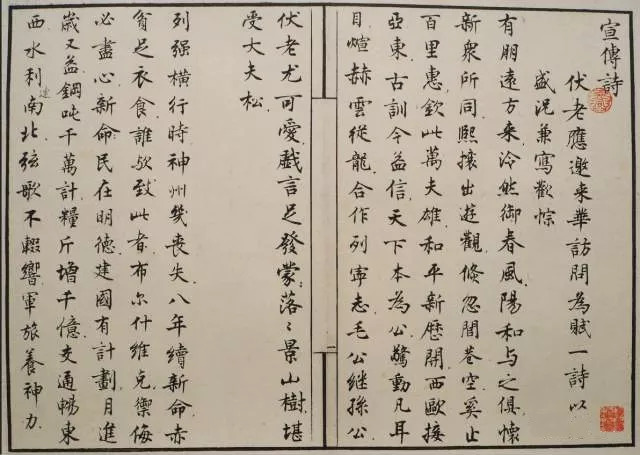 宣傳詩
伏老應邀来華訪問為賦一詩以
盛況兼寫歡悰
有朋遠方来泠然御春風陽和与之俱懷
新衆所同熙攘出遊觀倏忽閭巷空奚止
百里惠欽此萬夫雄和平新歷開西歐接
亞東古訓今益信天下本為公驚動凡耳
目煊赫雲從龍合作列寧志毛公继孫公
伏老尤可愛戲言足發蒙落〻景山樹堪
受大夫松
列强横行時神州幾喪失八年續新命赤
貧足衣食誰欤致此者布尔什維克禦侮
必盡心新命民在明德建國有計劃月進
歲又益鋼吨千萬計糧斤增千億交通暢東
西水利達南北弦歌不輟響軍旅養神力